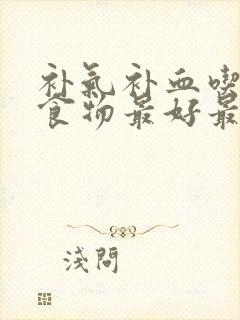 补氣补血喫
食物最好最
淺問